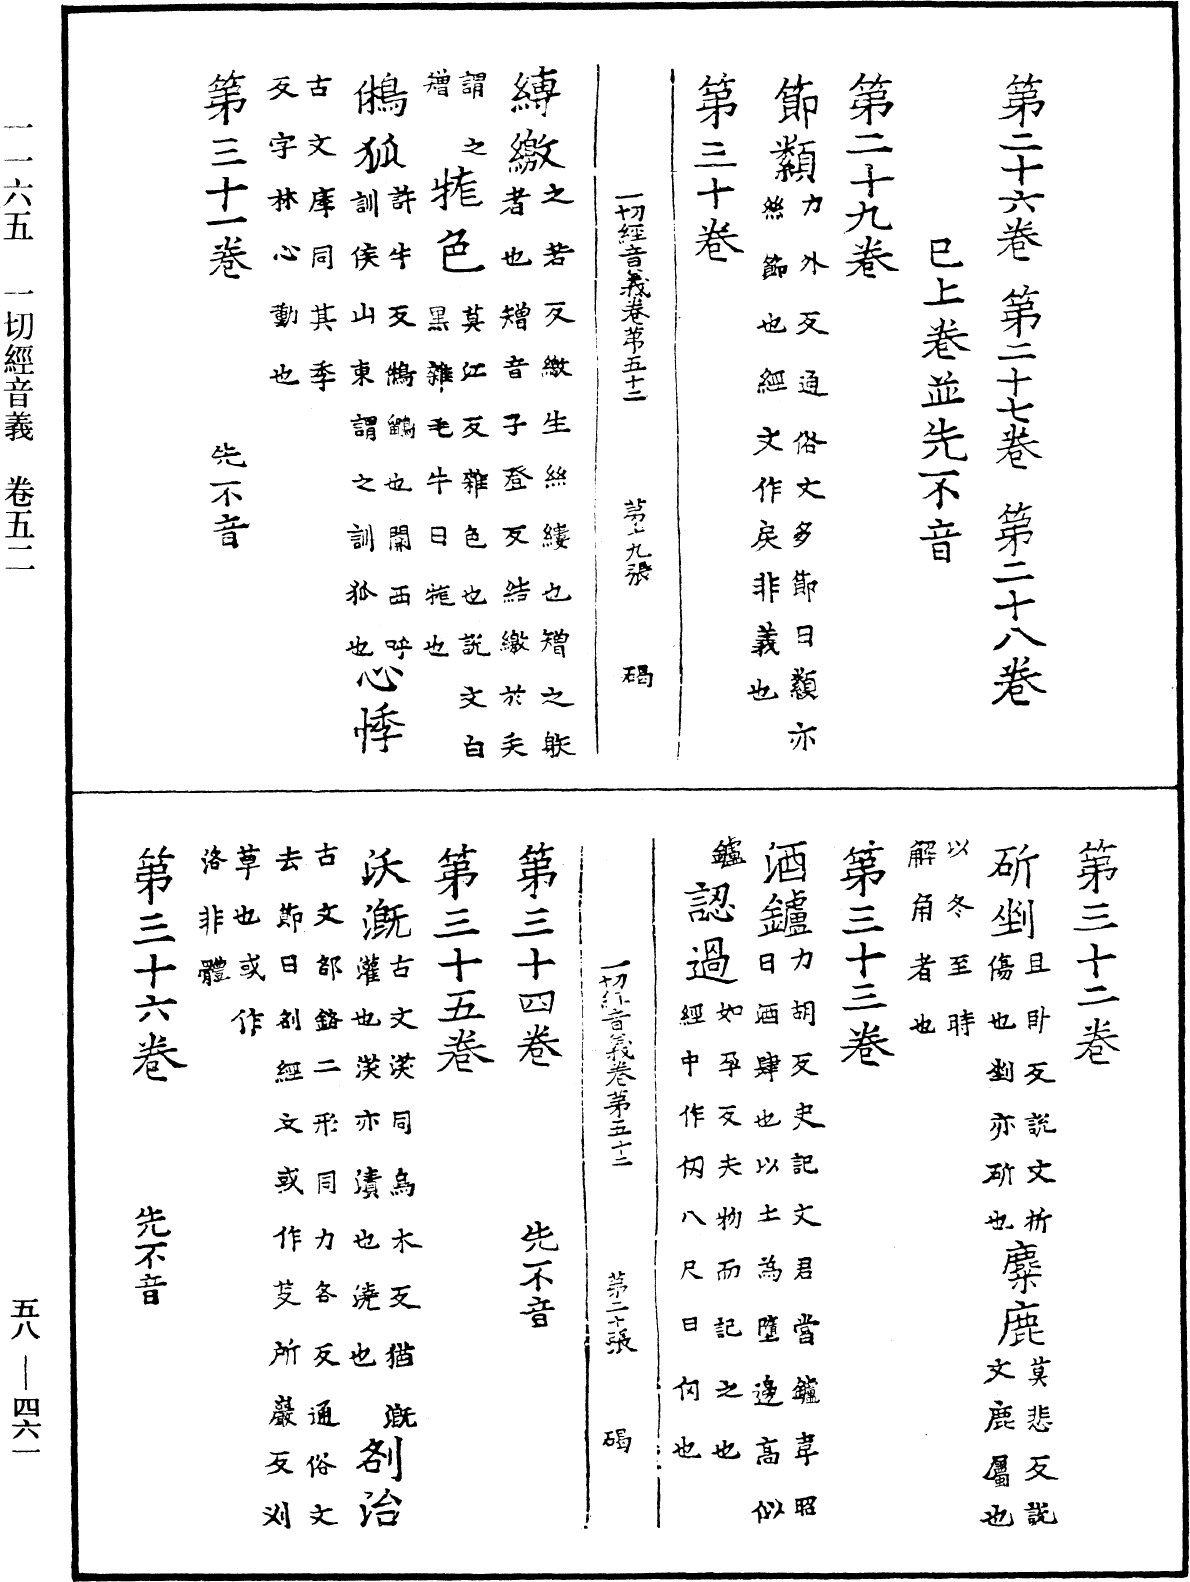 一一六五　一切經音義　卷五二
五八—四六一
第二十六卷　第二十七卷　第二十八卷
已上卷並先不音
第二十九卷
節纇力外反通俗文多節曰纇亦
絲節也經文作戾非義也
第三十卷
一切經音義卷第五十二　第十九張　碣
縛繳之若反繳生絲縷也矰之躲
者也矰音子登反結繳於矢
謂之矰
㹊色莫江反雜色也說文白
黑雜毛牛曰㹊也
鵂狐許牛反鵂鶹也關西呼
訓侯山東謂之訓狐也
心悸
古文痵同其季
反字林心動也
第三十一卷　先不音
第三十二卷
斫剉且卧反說文折
傷也剉亦斫也
麋鹿莫悲反說
文鹿屬也
以冬至時
解角者也
第三十三卷
酒鑪力胡反史記文君當鑪韋昭
曰酒肆也以土為墮邊高似
鑪
認過如孕反失物而記之也
經中作仞八尺曰仞也
一切經音義卷第五十二　第二十張　碣
第三十四卷　先不音
第三十五卷
沃溉古文渶同烏木反猶溉
灌也渶亦漬也澆也
剳治
古文部鉻二形同力各反通俗文
去節曰剳經文或作芟所巖反刈
草也或作
洛非體
第三十六卷　先不音